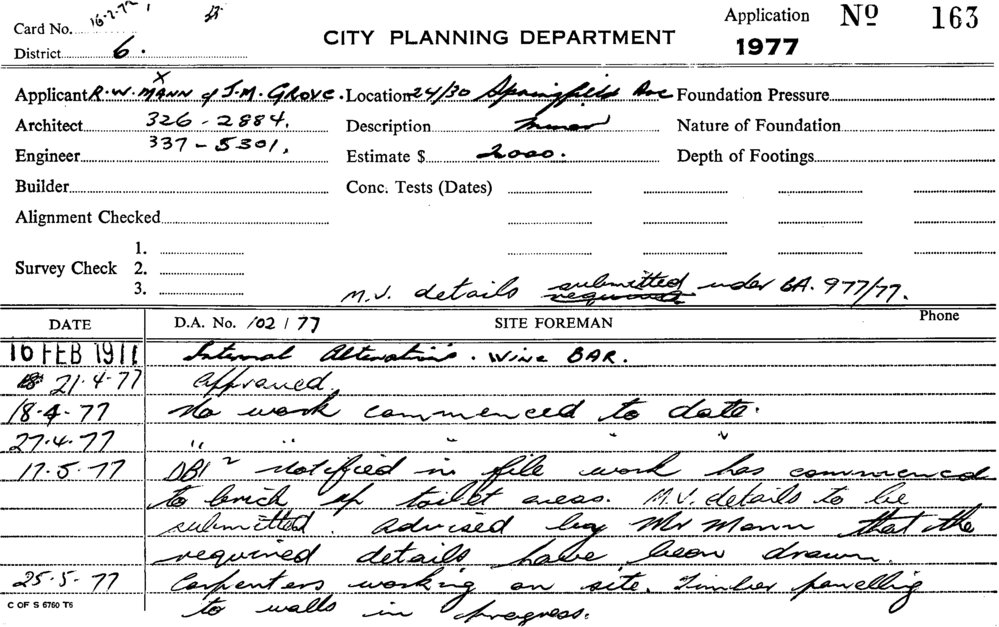 Card No. 16-2-77
District 6.
CITY PLANNING DEPARTMENT
Application Nº 163
1977
Applicant R.W. MANN of J.M. GROVE. Location 24/30 Springfield Ave Foundation Pressure
Architect 326-2884. Description Minor Nature of Foundation
Engineer 337-5301. Estimate $ 2000. Depth of Footings
Builder Conc. Tests (Dates)
Alignment Checked
Survey Check 1.
2.
3.
M.V. details submitted under BA. 977/77.
DATE D.A. No. 102/77 SITE FOREMAN Phone
16 FEB 1977 Internal Alterations. WINE BAR.
21.4.77 Approved.
18.4.77 No work commenced to date.
27.4.77 " " " " "
17.5.77 DBI² notified in file work has commenced
to brick up toilet areas. M.V. details to be
submitted. Advised by Mr Mann that the
required details have been drawn.
25.5.77 Carpenters working on site. Timber panelling
to walls in progress.
C OF S 6760 T6